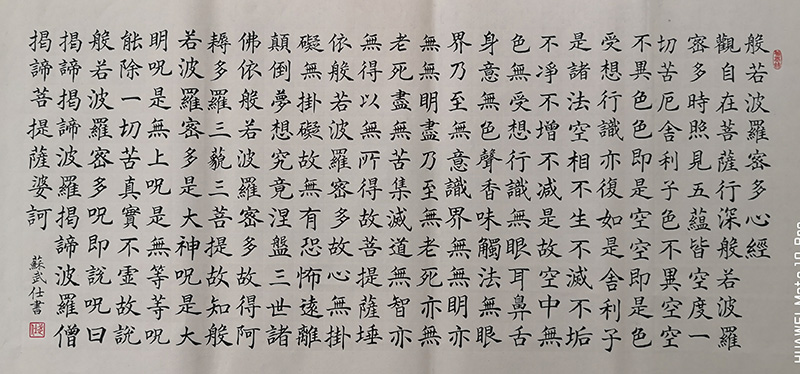 般若波羅密多心經
觀自在菩薩行深般若波羅
密多時照見五蘊皆空度一
切苦厄舍利子色不異空空
不異色色即是空空即是色
受想行識亦復如是舍利子
是諸法空相不生不滅不垢
不淨不增不減是故空中無
色無受想行識無眼耳鼻舌
身意無色聲香味觸法無眼
界乃至無意識界無無明亦
無無明盡乃至無老死亦無
老死盡無苦集滅道無智亦
無得以無所得故菩提薩埵
依般若波羅密多故心無掛
礙無掛礙故無有恐怖遠離
顛倒夢想究竟涅盤三世諸
佛依般若波羅密多故得阿
耨多羅三藐三菩提故知般
若波羅密多是大神呪是大
明呪是無上呪是無等等呪
能除一切苦真實不虛故說
般若波羅密多呪即說呪曰
揭諦揭諦波羅揭諦波羅僧
揭諦菩提薩婆訶
蘇武仕書
HUAWEI Mate 10 Pro